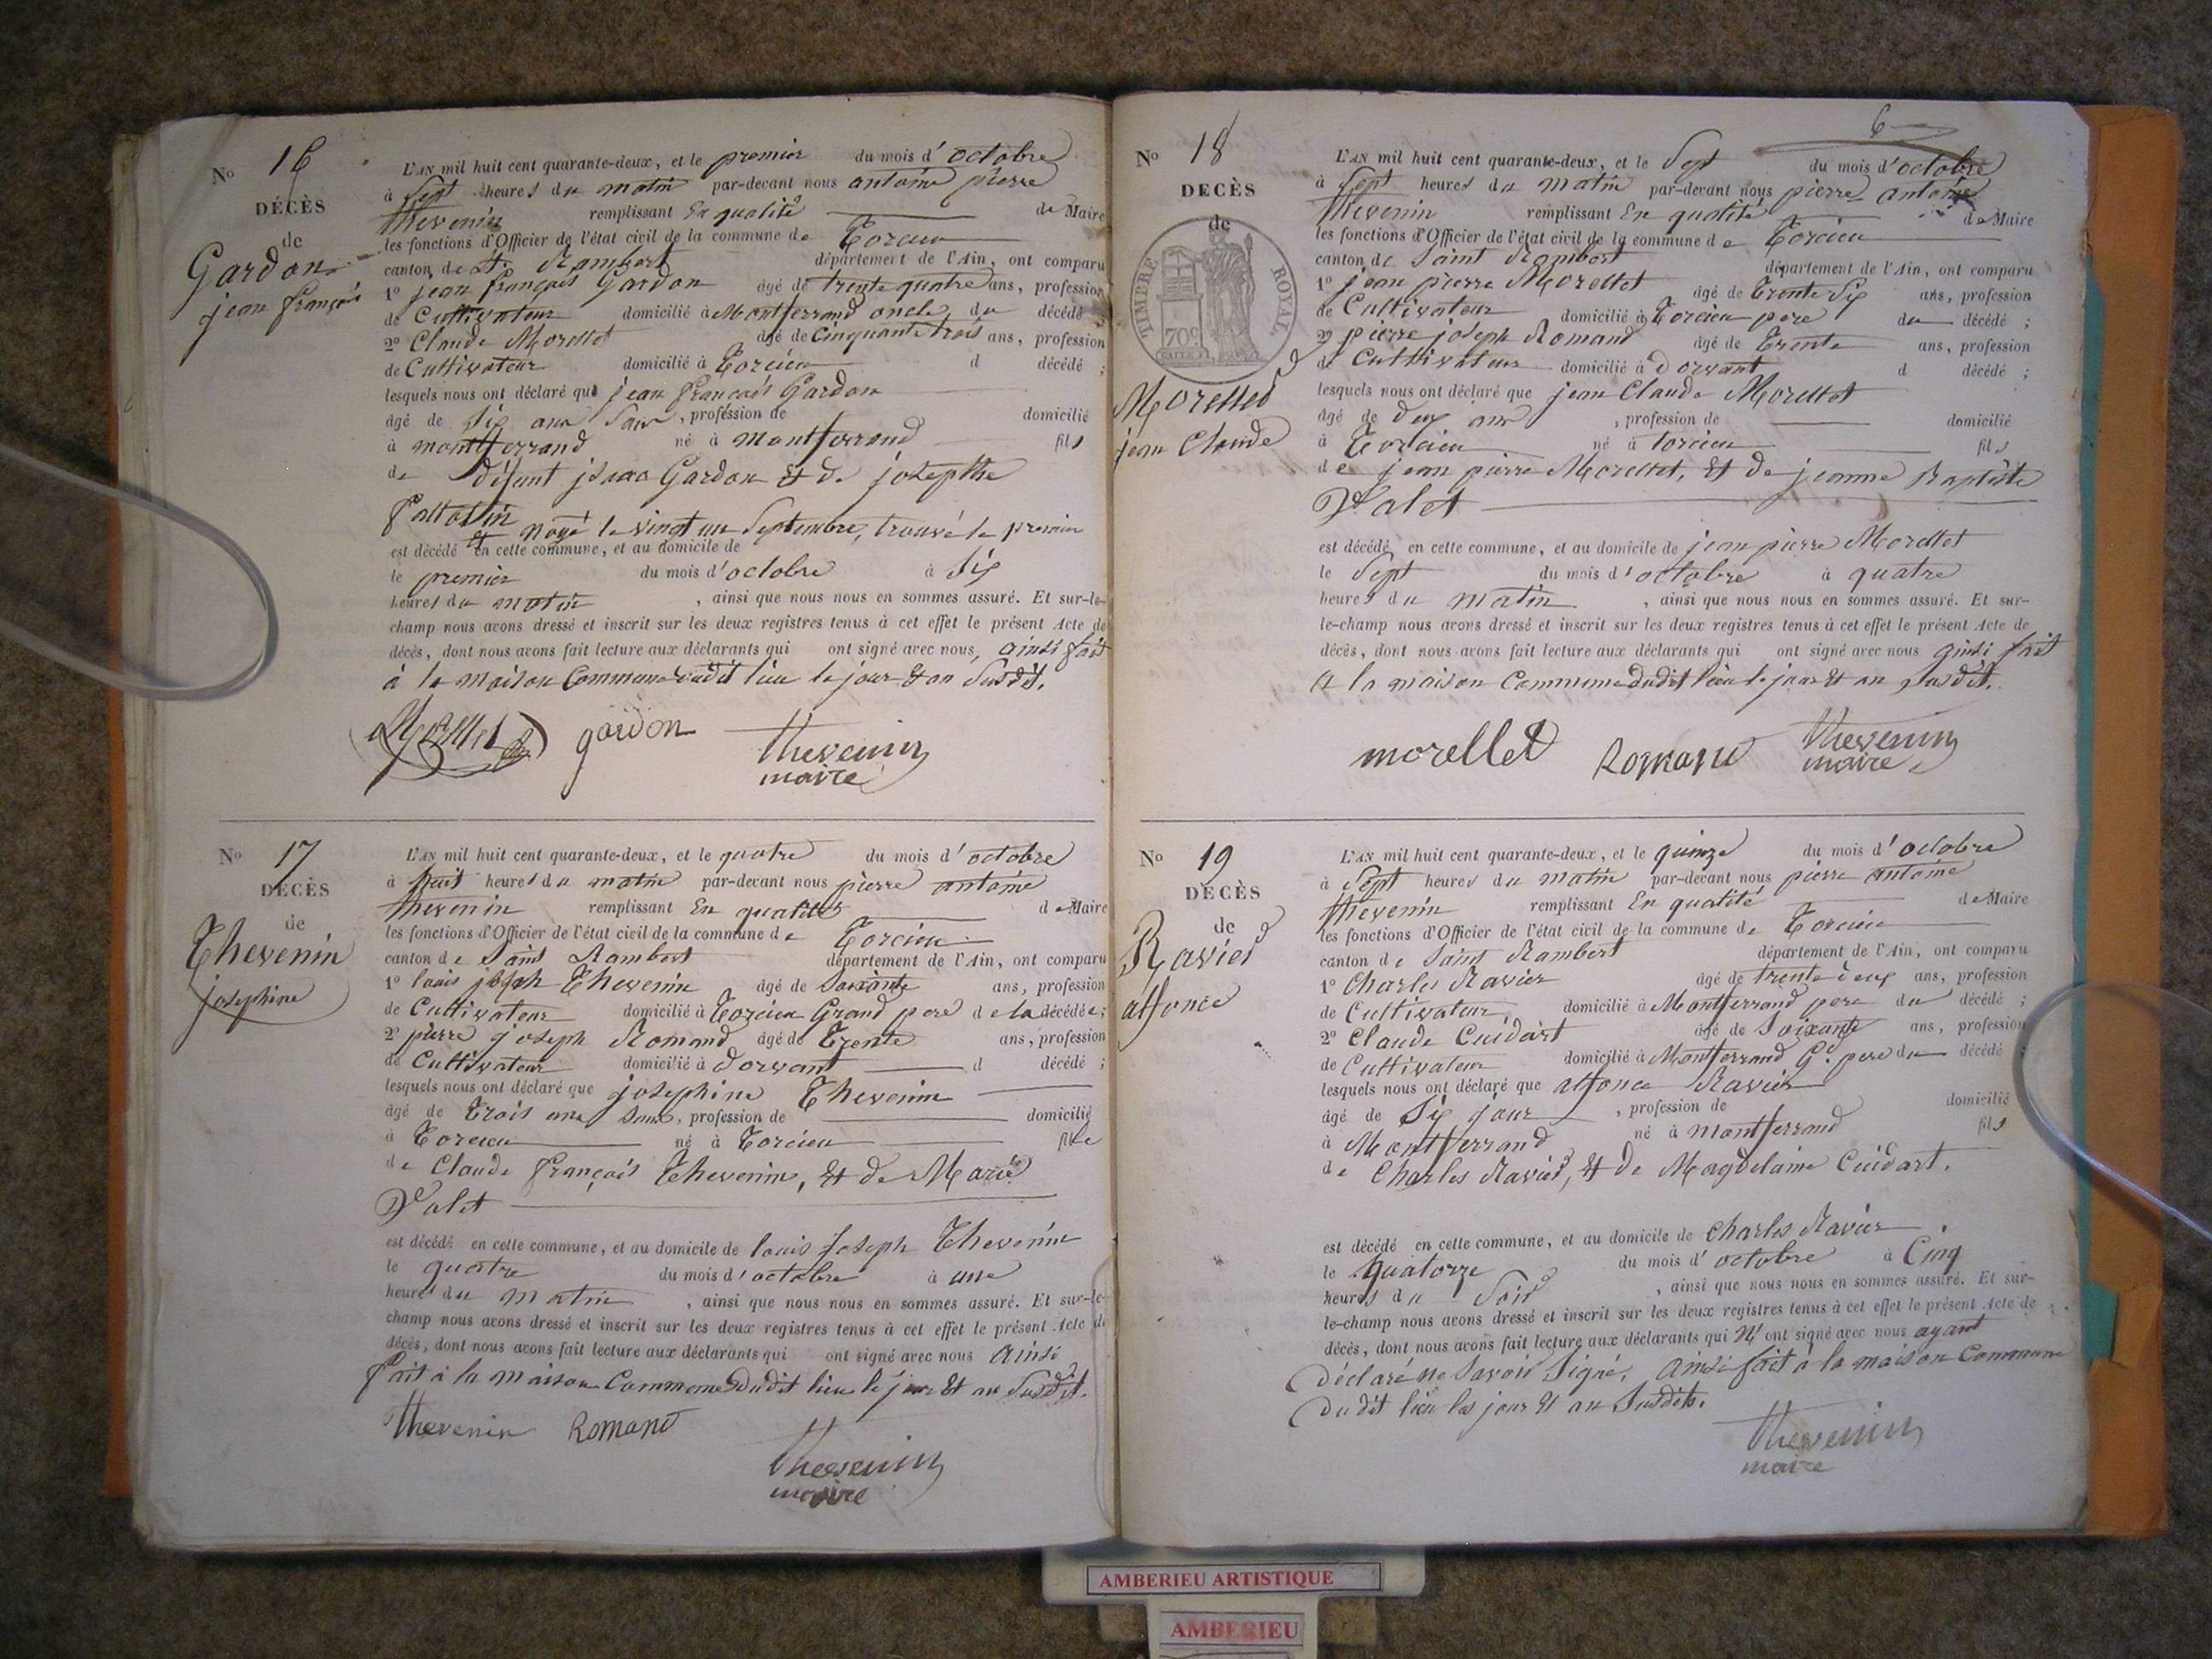 No 16
DÉCÈS
de
Gardon
jean françois
L'AN mil huit cent quarante-deux, et le premier du mois d'octobre
à Sept heures du matin par-devant nous antoine pierre
thevenin remplissant En qualité de Maire
les fonctions d'Officier de l'état civil de la commune de Torcieu
canton de St Rambert département de l'Ain, ont comparu
1º jean françois Gardon âgé de trente quatre ans, profession
de Cultivateur domicilié à Montferrand oncle du décédé ;
2º Claude Morellet âgé de cinquante trois ans, profession
de Cultivateur domicilié à Torcieu d décédé ;
lesquels nous ont déclaré que jean françois Gardon
âgé de Six ans , profession de domicilié
à montferrand né à montferrand fils
de défunt Gardon Et de josepthe
noyé le vingt un Septembre, trouvé le premier
est décédé en cette commune, et au domicile de
le premier du mois d'octobre à Six
heures du matin , ainsi que nous nous en sommes assuré. Et sur-le-
champ nous avons dressé et inscrit sur les deux registres tenus à cet effet le présent Acte de
décès, dont nous avons fait lecture aux déclarants qui ont signé avec nous, ainsi fait
à la maison Commune dudit lieu le jour Et an Susdit.
Morellet gardon thevenin
maire
No 17
DÉCÈS
de
Thevenin
josephine
L'AN mil huit cent quarante-deux, et le quatre du mois d'octobre
à huit heures du matin par-devant nous pierre antoine
thevenin remplissant En qualité de Maire
les fonctions d'Officier de l'état civil de la commune de Torcieu
canton de Saint Rambert département de l'Ain, ont comparu
1º louis joseph Thevenin âgé de Soixante ans, profession
de Cultivateur domicilié à Torcieu Grand pere de la décédée ;
2º pierre joseph Romand âgé de Trente ans, profession
de Cultivateur domicilié à dorvant d décédé ;
lesquels nous ont déclaré que josephine Thevenin
âgé de Trois ans , profession de domicilié
à Torcieu né à Torcieu fille
de Claude françois Thevenin, Et de Marie
Valet
est décédé en cette commune, et au domicile de louis joseph Thevenin
le quatre du mois d'octobre à une
heures du matin , ainsi que nous nous en sommes assuré. Et sur-le-
champ nous avons dressé et inscrit sur les deux registres tenus à cet effet le présent Acte de
décès, dont nous avons fait lecture aux déclarants qui ont signé avec nous ainsi
fait à la maison Commune dudit lieu le jour Et an Susdit.
thevenin Romand
thevenin
maire
6
No 18
DECÈS
de
TIMBRE ROYAL
70c
Morellet
jean Claude
L'AN mil huit cent quarante-deux, et le Sept du mois d'octobre
à Sept heures du matin par-devant nous pierre antoine
thevenin remplissant En qualité de Maire
les fonctions d'Officier de l'état civil de la commune de Torcieu
canton de Saint Rambert département de l'Ain, ont comparu
1º jean pierre Morellet âgé de Trente Six ans, profession
de Cultivateur domicilié à Torcieu pere du décédé ;
2º pierre joseph Romand âgé de Trente ans, profession
de Cultivateur domicilié à dorvant d décédé ;
lesquels nous ont déclaré que jean Claude Morellet
âgé de deux ans , profession de domicilié
à Torcieu né à torcieu fils
de jean pierre Morellet, Et de jeanne Baptiste
Valet
est décédé en cette commune, et au domicile de jean pierre Morellet
le Sept du mois d'octobre à quatre
heures du matin , ainsi que nous nous en sommes assuré. Et sur-
le-champ nous avons dressé et inscrit sur les deux registres tenus à cet effet le présent Acte de
décès, dont nous avons fait lecture aux déclarants qui ont signé avec nous ainsi fait
a la maison Commune dudit lieu le jour Et an susdit.
morellet Romand thevenin
maire
No 19
DECÈS
de
Ravier
alfonce
L'AN mil huit cent quarante-deux, et le quinze du mois d'octobre
à Sept heures du matin par-devant nous pierre antoine
thevenin remplissant En qualité de Maire
les fonctions d'Officier de l'état civil de la commune de Torcieu
canton de Saint Rambert département de l'Ain, ont comparu
1º Charles Ravier âgé de trente deux ans, profession
de Cultivateur domicilié à Montferrand pere du décédé ;
2º Claude Cuidart âgé de Soixante ans, profession
de Cultivateur domicilié à Montferrand Gd pere du décédé ;
lesquels nous ont déclaré que alfonce Ravier
âgé de Six jour , profession de domicilié
à Montferrand né à montferrand fils
de Charles Ravier, Et de Magdelaine Cuidart.
est décédé en cette commune, et au domicile de Charles Ravier
le quatorze du mois d'octobre à Cinq
heures du Soir , ainsi que nous nous en sommes assuré. Et sur-
le-champ nous avons dressé et inscrit sur les deux registres tenus à cet effet le présent Acte de
décès, dont nous avons fait lecture aux déclarants qui n'ont signé avec nous ayant
déclaré ne Savoir Signé, ainsi fait à la maison Commune
dudit lieu les jour Et an Susdits.
thevenin
maire
AMBERIEU ARTISTIQUE
AMBERIEU